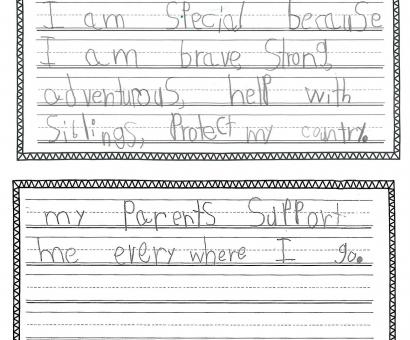 I am special because
I am brave, Strong,
adventurous, help with
Siblings, Protect my country.
my Parents Support
me every where I go.